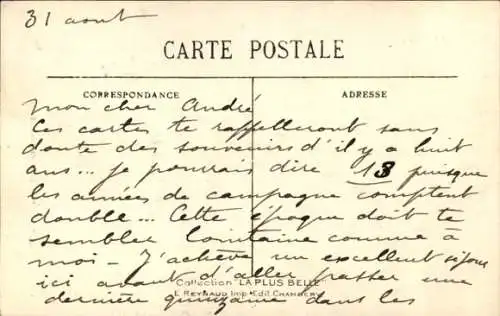 31 aout
CARTE POSTALE
CORRESPONDANCE
ADRESSE
Mon cher André
Ces cartes te rappelleront sans
doute des souvenirs d'il y a huit
ans... je pourrais dire 13 puisque
les années de campagne comptent
double... Cette époque doit te
sembler lointaine comme à
moi - J'achève un excellent séjour
ici avant d'aller passer une
Collection "LA PLUS BELLE"
E. REYNAUD Imp.-Edit CHAMBERY
dernière quinzaine dans les